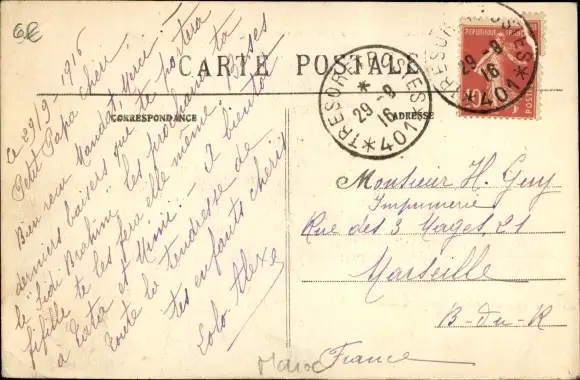 6E
CARTE POSTALE
CORRESPONDANCE
ADRESSE
Ce 29/9 1916
Petit Papa chéri
Bien reçu Mandat, Merci!
derniers baisers que te portera
le Sidi Brahim, les prochains ta
fifille te les fera elle même. Baises
à Tata et Mimi. - A bientôt
toute la tendresse de
tes enfants chéris
Lolo Alex
TRESOR ET POSTES
29-9
16
*401*
TRESOR ET POSTES
29-9
16
*401*
REPUBLIQUE FRANCAISE
10
POSTES
Monsieur H. Guy
Imprimerie
Rue des 3 Mages, 21
Marseille
B-du-R
France
Maroc